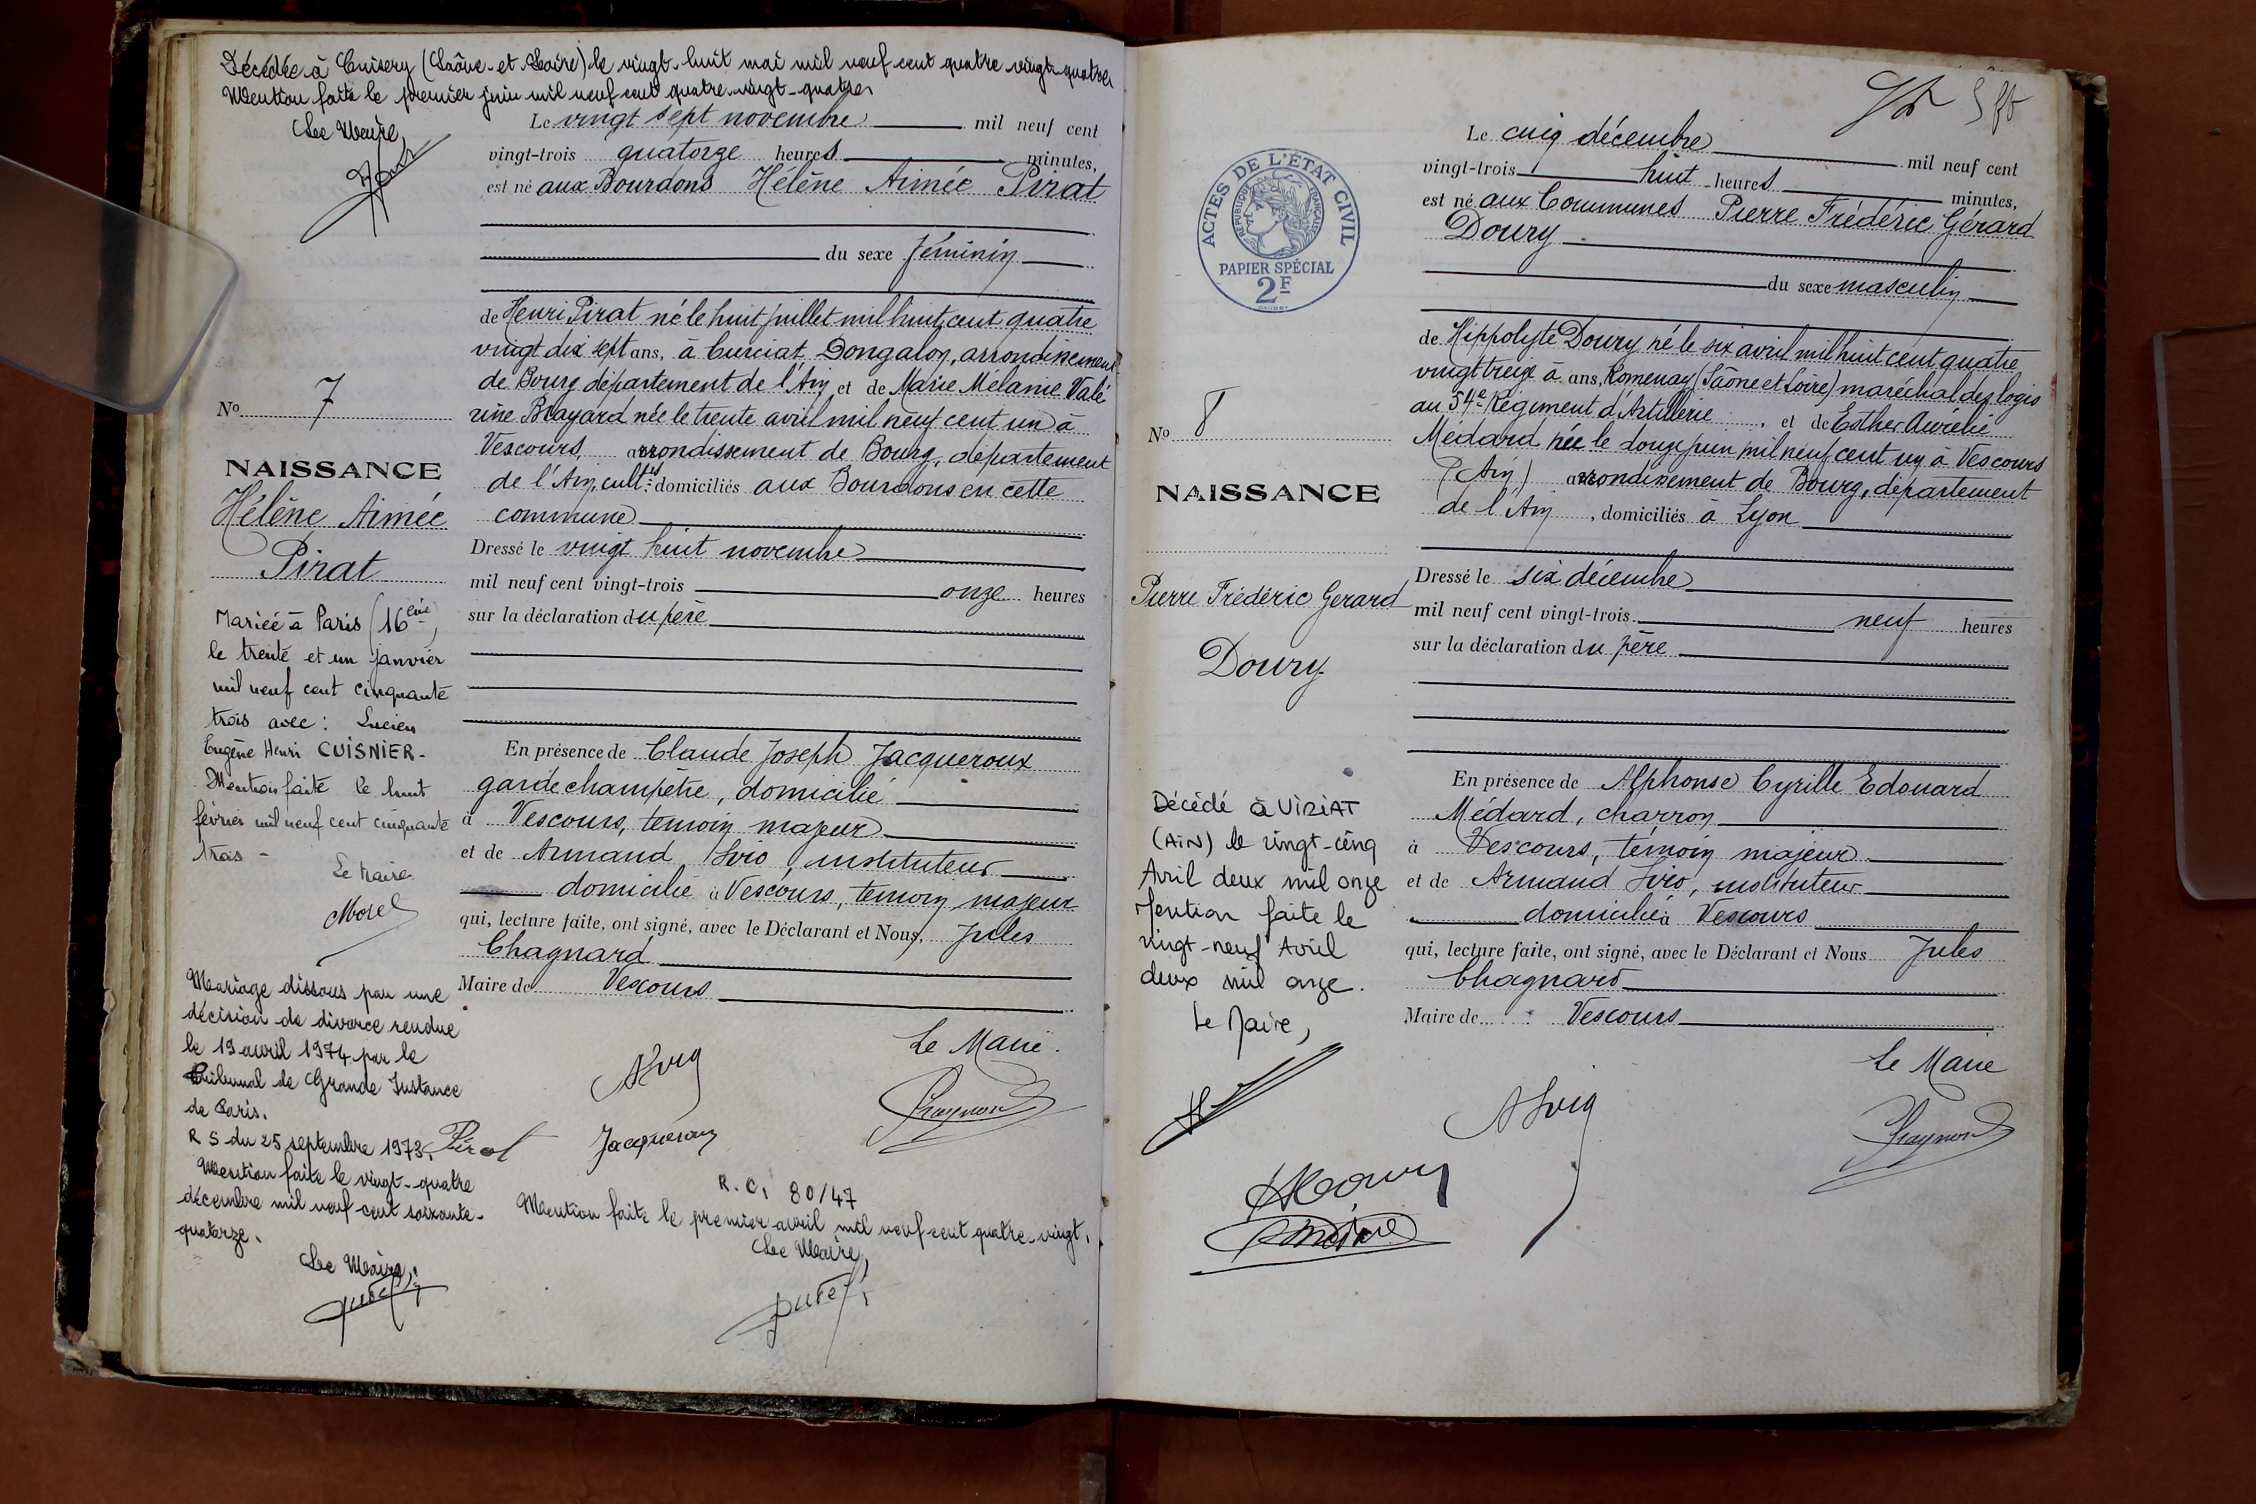 Décédée à Cuisery (Saône-et-Loire) le vingt-huit mai mil neuf cent quatre vingt-quatre
Mention faite le premier juin mil neuf cent quatre-vingt-quatre
Le Maire,
Le vingt sept novembre mil neuf cent
vingt-trois quatorze heures minutes,
est né aux Bourdons Hélène Aimée Pirat
du sexe féminin
de Henri Pirat né le huit juillet mil huit cent quatre
vingt dix sept ans, à Curciat Dongalon, arrondissement
de Bourg département de l'Ain et de Marie Mélanie Valé
rine Brayard née le trente avril mil neuf cent un à
Vescours arrondissement de Bourg, département
de l'Ain, cult.rs domiciliés aux Bourdons en cette
commune
Dressé le vingt huit novembre
mil neuf cent vingt-trois onze heures
sur la déclaration du père
En présence de Claude Joseph Jacqueroux
garde champêtre, domicilié
à Vescours, témoin majeur
et de Armand Ivio, instituteur
domicilié à Vescours, témoin majeur
qui, lecture faite, ont signé, avec le Déclarant et Nous, Jules
Chagnard
Maire de Vescours
Le Maire.
Pirat
Jacqueroux
R.C. 80/47
Mention faite le premier avril mil neuf cent quatre-vingt.
Le Maire,
No 7
NAISSANCE
Hélène Aimée
Pirat
Mariée à Paris (16ème),
le trente et un janvier
mil neuf cent cinquante
trois avec: Lucien
Eugène Henri CUISNIER-
Mention faite le huit
février mil neuf cent cinquante
trois -
Le Maire
Morel
Mariage dissous par une
décision de divorce rendue
le 19 avril 1974 par le
Tribunal de Grande Instance
de Paris.
R S du 25 septembre 1973.
Mention faite le vingt-quatre
décembre mil neuf cent soixante-
quatorze.
Le Maire,
ACTES DE L'ÉTAT CIVIL
RÉPUBLIQUE FRANÇAISE
PAPIER SPÉCIAL
2F
Le cinq décembre mil neuf cent
vingt-trois huit heures minutes,
est né aux Communes Pierre Frédéric Gérard
Doury
du sexe masculin
de Hippolyte Doury né le six avril mil huit cent quatre
vingt treize à ans, Romenay (Saône et Loire) maréchal des logis
au 54e Régiment d'Artillerie, et de Esther Aurélie
Médard née le douze juin mil neuf cent un à Vescours
(Ain) arrondissement de Bourg, département
de l'Ain, domiciliés à Lyon
Dressé le six décembre
mil neuf cent vingt-trois neuf heures
sur la déclaration du père
En présence de Alphonse Cyrille Edouard
Médard, charron
à Vescours, témoin majeur
et de Armand Ivio, instituteur
domicilié à Vescours
qui, lecture faite, ont signé, avec le Déclarant et Nous Jules
Chagnard
Maire de Vescours
Le Maire
No 8
NAISSANCE
Pierre Frédéric Gerard
Doury
Décédé à VIRIAT
(AIN) le vingt-cinq
Avril deux mil onze
Mention faite le
vingt-neuf Avril
deux mil onze.
Le Maire,